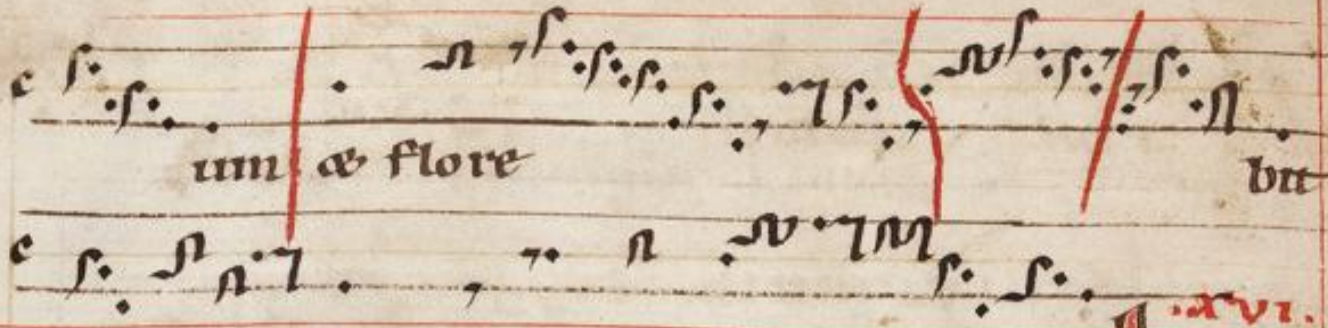 c
um & flore bit
c
.xvi.